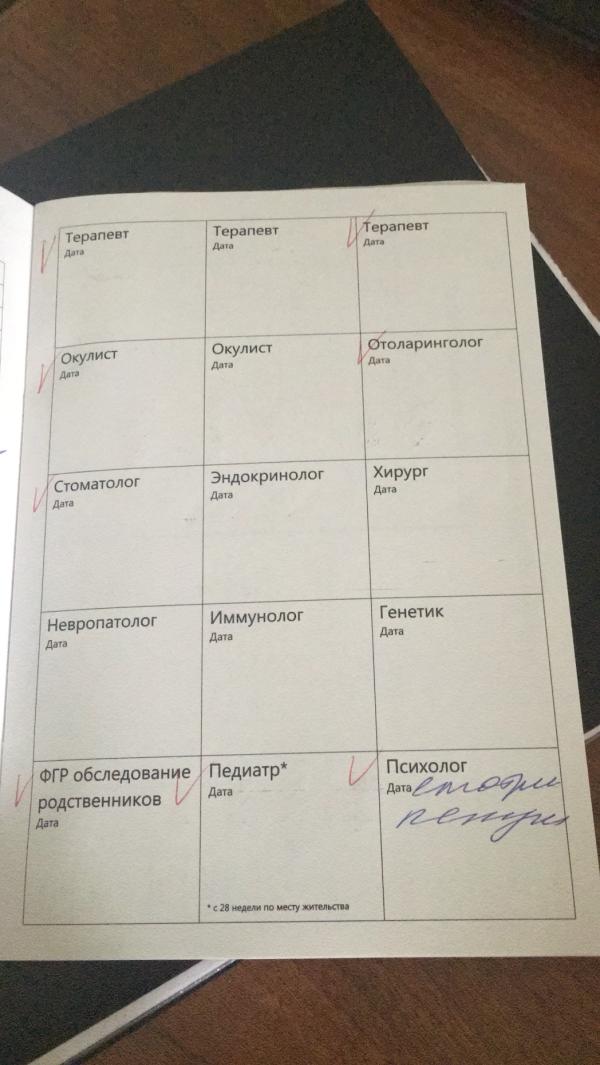 Терапевт
Дата
Терапевт
Дата
Терапевт
Дата
Окулист
Дата
Окулист
Дата
Отоларинголог
Дата
Стоматолог
Дата
Эндокринолог
Дата
Хирург
Дата
Невропатолог
Дата
Иммунолог
Дата
Генетик
Дата
ФГР обследование
родственников
Дата
Педиатр*
Дата
* с 28 недели по месту жительства
Психолог
Дата